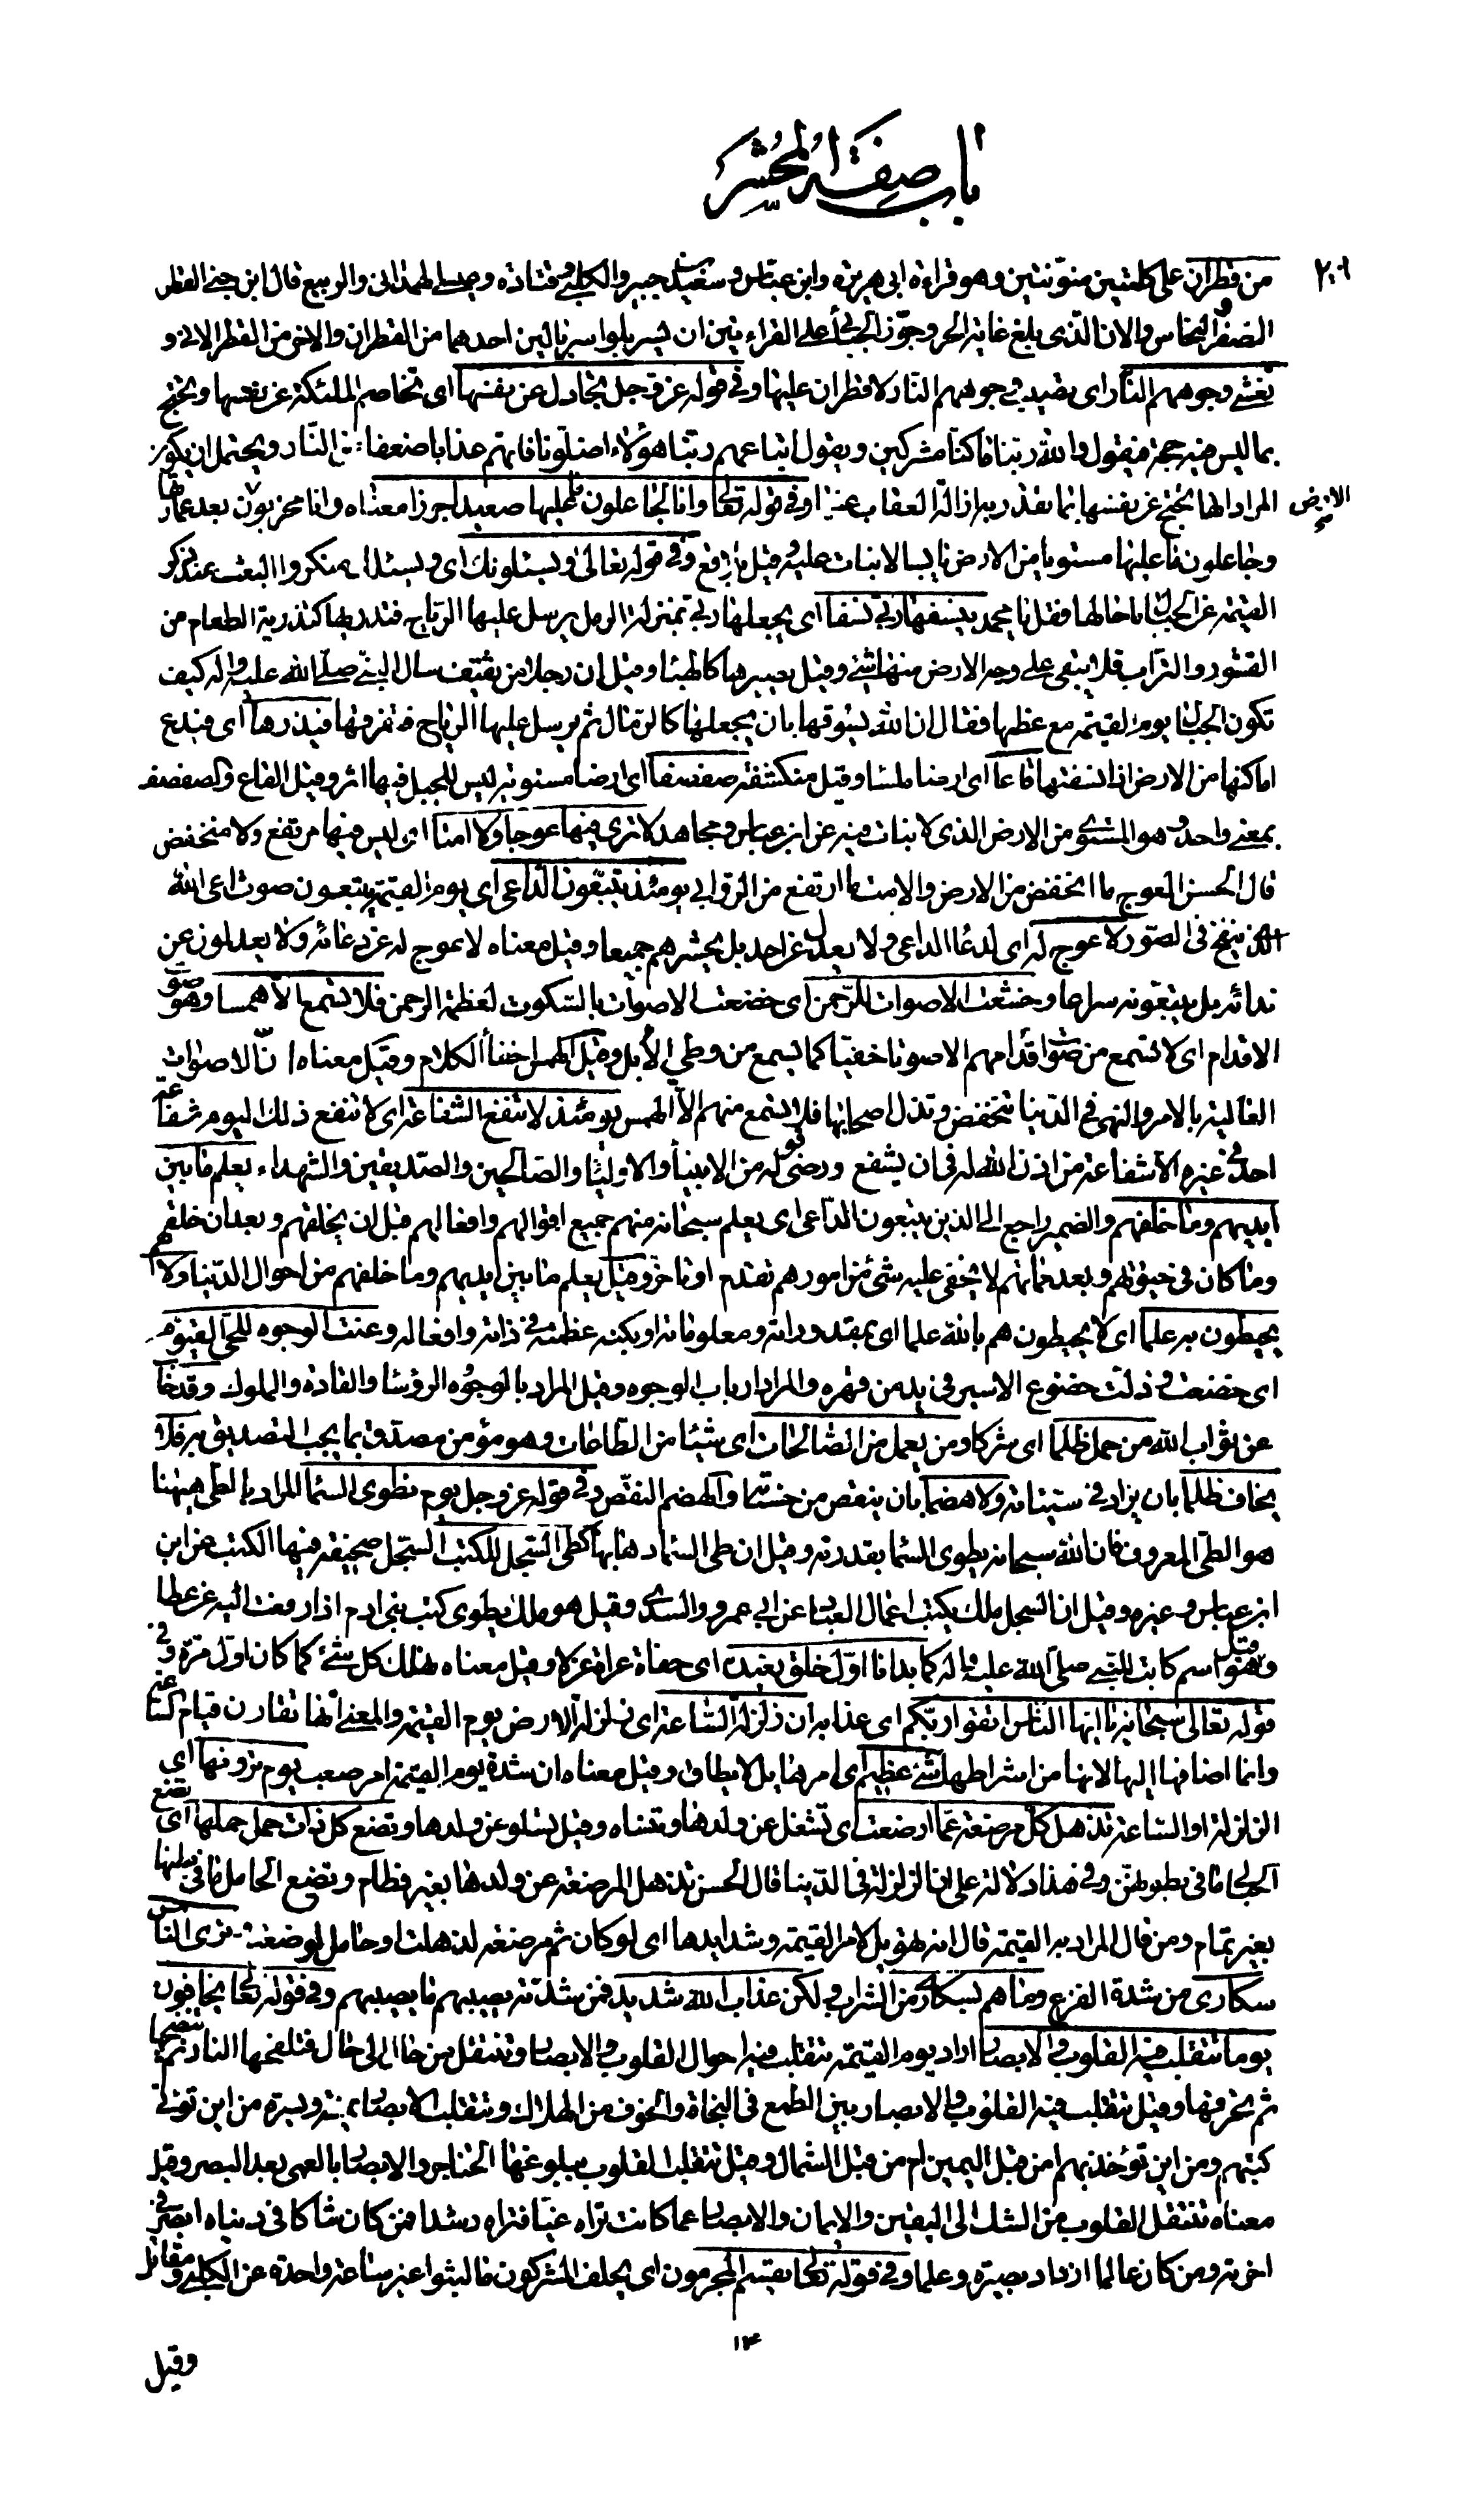 باب صفة المحشر
٢٠١
من قطران على كلمتين منوّنتين وهو قراءة ابى هريرة وابن عباس وسعيد بن جبير والكلبي وقتادة وعيسى الهمذانى والربيع قال ابن جني القطر
الصفر والنحاس والآن الذى بلغ غاية الحر وجوّز الجبائى على القراءتين ان يسربلوا سربالين احدهما من القطران والاخر من القطر الآنى و
تغشى وجوههم النار اى يصيب وجوههم النار لا قطران عليها وفي قوله عز وجل تجادل عن نفسها اى تخاصم الملئكة عن نفسها وتحتج
بما ليس فيه حجة فيقول والله ربنا ما كنا مشركين ويقول اتباعهم ربنا هؤلاء اضلّونا فاتهم عذابا ضعفا من النّار ويحتمل ان يكون
المراد انها تحتج عن نفسها بما تقدر به ازالة العقاب عنها وفي قوله تعالى وانا لجاعلون ما عليها صعيدا جرزا معناه وانا مخربون الارض بعد عمارتها
وجاعلون ما عليها مستويا من الارض يابسا لا نبات عليه وقيل بلاقع وفي قوله تعالى ويسئلونك اى ويسئلك منكروا البعث عند ذكر
القيمة عن الجبال ما حالها فقل يا محمد ينسفها ربي نسفا اى يجعلها ربي بمنزلة الرمل يرسل عليها الرياح فتذريها كتذرية الطعام من
القشور والتراب فلا يبقى على وجه الارض منها شئ وقيل يصيرها كالهباء وقيل ان رجلا من ثقيف سال النبي صلى الله عليه واله كيف
تكون الجبال يوم القيمة مع عظمها فقال ان الله يسوقها بان يجعلها كالرمال ثم يرسل عليها الرياح فتفرقها فيذرها اى فيدع
اماكنها من الارض اذا نسفها قاعا اى ارضا ملساء وقيل منكشفة صفصفا اى ارضا مستوية ليس للجبل فيها اثر وقيل القاع والصفصف
بمعنى واحد وهو المستوى من الارض الذى لا نبات فيه عن ابن عباس ومجاهد لا ترى فيها عوجا ولا امتا اى ليس فيها مرتفع ولا منخفض
قال الحسن العوج ما انخفض من الارض والامت ما ارتفع من الروابى يومئذ يتبعون الداعى اى يوم القيمة يتبعون صوت داعى الله
الذى ينفخ فى الصور لا عوج له اى لدعاء الداعى ولا يعدل عن احد بل يحشرهم جميعا وقيل معناه لا عوج لهم عن دعائه ولا يعدلون عن
ندائه بل يتبعونه سراعا وخشعت الاصوات للرحمن اى خضعت الاصوات بالسكوت لعظمة الرحمن فلا تسمع الا همسا وهو صوت
الاقدام اى لا تسمع من صوت اقدامهم الا صوتا خفيا كما يسمع من وطى الابل وقيل الهمس اخفاء الكلام وقيل معناه ان الاصوات
العالية بالامر والنهى فى الدنيا تنخفض وتذل اصحابها فلا تسمع منهم الا الهمس يومئذ لا تنفع الشفاعة اى لا تنفع ذلك اليوم شفاعة
احد فى غيره الا شفاعة من اذن الله له فى ان يشفع ورضى قوله من الانبياء والاولياء والصالحين والصديقين والشهداء يعلم ما بين
ايديهم وما خلفهم والضمير راجع الى الذين يتبعون الداعى اى يعلم سبحانه منهم جميع اقوالهم وافعالهم قبل ان يخلقهم وبعد ان خلقهم
وما كان فى حيوتهم وبعد مماتهم لا يخفى عليه شئ من امورهم تقدم او تاخر وقيل يعلم ما بين ايديهم وما خلفهم من احوال الدنيا ولا
يحيطون به علما اى لا يحيطون هم بالله علما اى بمقدوراته ومعلوماته او بكنه عظمته فى ذاته وافعاله وعنت الوجوه للحى القيوم
اى خضعت وذلت خضوع الاسير فى يد من قهره والمراد ارباب الوجوه وقيل المراد بالوجوه الرؤساء والقادة والملوك وقد خاب
عن ثواب الله من حمل ظلما اى شركا ومن يعمل من الصالحات اى شيئا من الطاعات وهو مؤمن مصدق بما يجب التصديق به فلا
يخاف ظلما بان يزاد فى سيئاته ولا هضما بان ينقص من حسناته والهضم النقص وفي قوله عز وجل يوم نطوى السماء المراد بالطى هيهنا
هو الطى المعروف فان الله سبحانه يطوى السماء بقدرته وقيل ان طى السماء ذهابها كطى السجل للكتب السجل صحيفة فيها الكتب عن ابن
ابن عباس وغيره وقيل ان السجل ملك يكتب اعمال العباد عن ابى عمرو والسدى وقيل هو ملك يطوى كتب بنى ادم اذا رفعت اليه عن عطا
وقيل هو اسم كاتب للنبي صلى الله عليه واله كما بدانا اوّل خلق نعيده اى حفاة عراة عزلا وقيل معناه نهلك كل شئ كما كان اوّل مرة وفي
قوله تعالى سبحانه يا ايها الناس اتقوا ربكم اى عذابه ان زلزلة الساعة اى زلزلة الارض يوم القيمة والمعنى انها تقارن قيام الساعة
وانما اضافها اليها لانها من اشراطها شئ عظيم اى امر هائل لا يطاق وقيل معناه ان شدة يوم القيمة امر صعب يوم ترونها اى
الزلزلة او الساعة تذهل كل مرضعة عمّا ارضعت اى تشغل عن ولدها وتنساه وقيل تسلو عن ولدها وتضع كل ذات حمل حملها اى تضع
الحبالى ما فى بطونهن وفي هذا دلالة على ان الزلزلة فى الدنيا قال الحسن تذهل المرضعة عن ولدها بغير فطام وتضع الحامل ما فى بطنها
بغير تمام ومن قال المراد به القيمة قال انه تهويل لامر القيمة وشدايدها اى لو كان ثم مرضعة لذهلت او حامل لوضعت وترى الناس
سكارى من شدة الفزع وما هم بسكارى من الشراب ولكن عذاب الله شديد فمن شدته يصيبهم ما يصيبهم وفي قوله تعالى يخافون
يوما تتقلب فيه القلوب والابصار اراد يوم القيمة تتقلب فيه احوال القلوب والابصار وتنتقل من حال الى حال فتلفحها النار ثم تنضجها
ثم تحرقها وقيل تتقلب فيه القلوب والابصار بين الطمع فى النجاة والخوف من الهلاك وتتقلب الابصار يمنة ويسرة من اين تؤتى
كتبهم ومن اين تؤخذ بهم امن قبل اليمين ام من قبل الشمال وقيل تتقلب القلوب ببلوغها الحناجر والابصار بالعمى بعد البصر وقيل
معناه تنتقل القلوب من الشك الى اليقين والايمان والابصار عما كانت تراه غيّا فتراه رشدا فمن كان شاكا فى دنياه ابصر فى
اخرته ومن كان عالما ازداد بصيرة وعلما وفي قوله تعالى يقسم المجرمون اى يحلف المشركون ما لبثوا غير ساعة واحدة عن الكلبي ومقاتل
١٣
وقيل